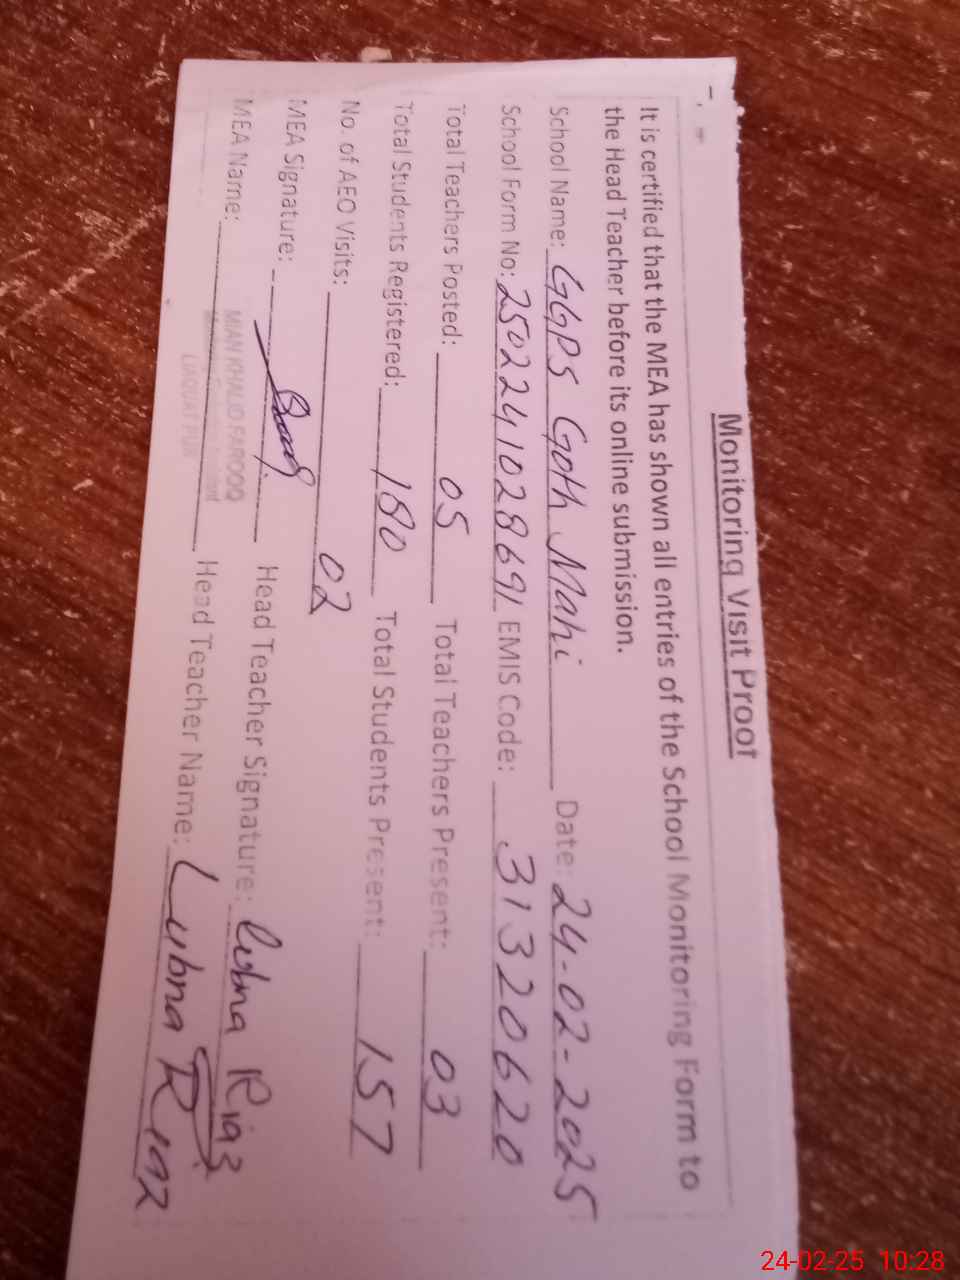 Monitoring Visit Proof
It is certified that the MEA has shown all entries of the School Monitoring Form to
the Head Teacher before its online submission.
School Name: GGPS Goth Mahi Date: 24-02-2025
School Form No: 2502241028691 EMIS Code: 31320620
Total Teachers Posted: 05 Total Teachers Present: 03
Total Students Registered: 180 Total Students Present: 157
No. of AEO Visits: 02
MEA Signature: Head Teacher Signature: lubna Riaz
MEA Name: MIAN KHALID FAROOQ Head Teacher Name: Lubna Riaz
LIAQUAT PUR
24-02-25 10:28